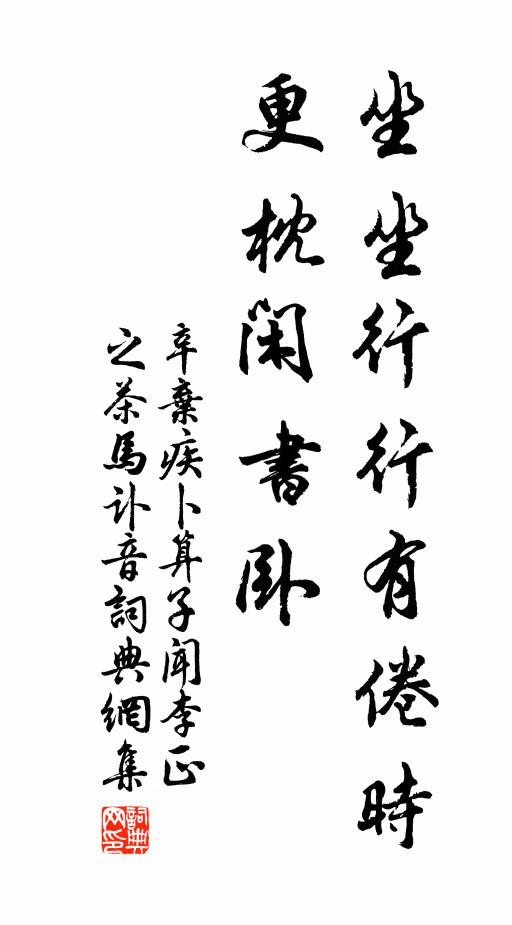 坐坐行行有倦時
更枕閑書臥
辛棄疾卜算子聞李正
之茶馬訃音詞典網集
詞典
网印